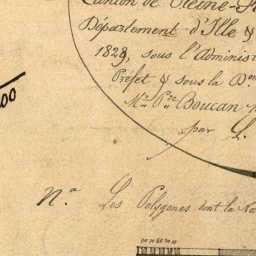 Canton de Pleine-
Département d'Ille &
1829, sous l'Adminis
Préfet & sous la Don
Mr Pre Boucan
par L.
00
Na Les Polygones dont la No